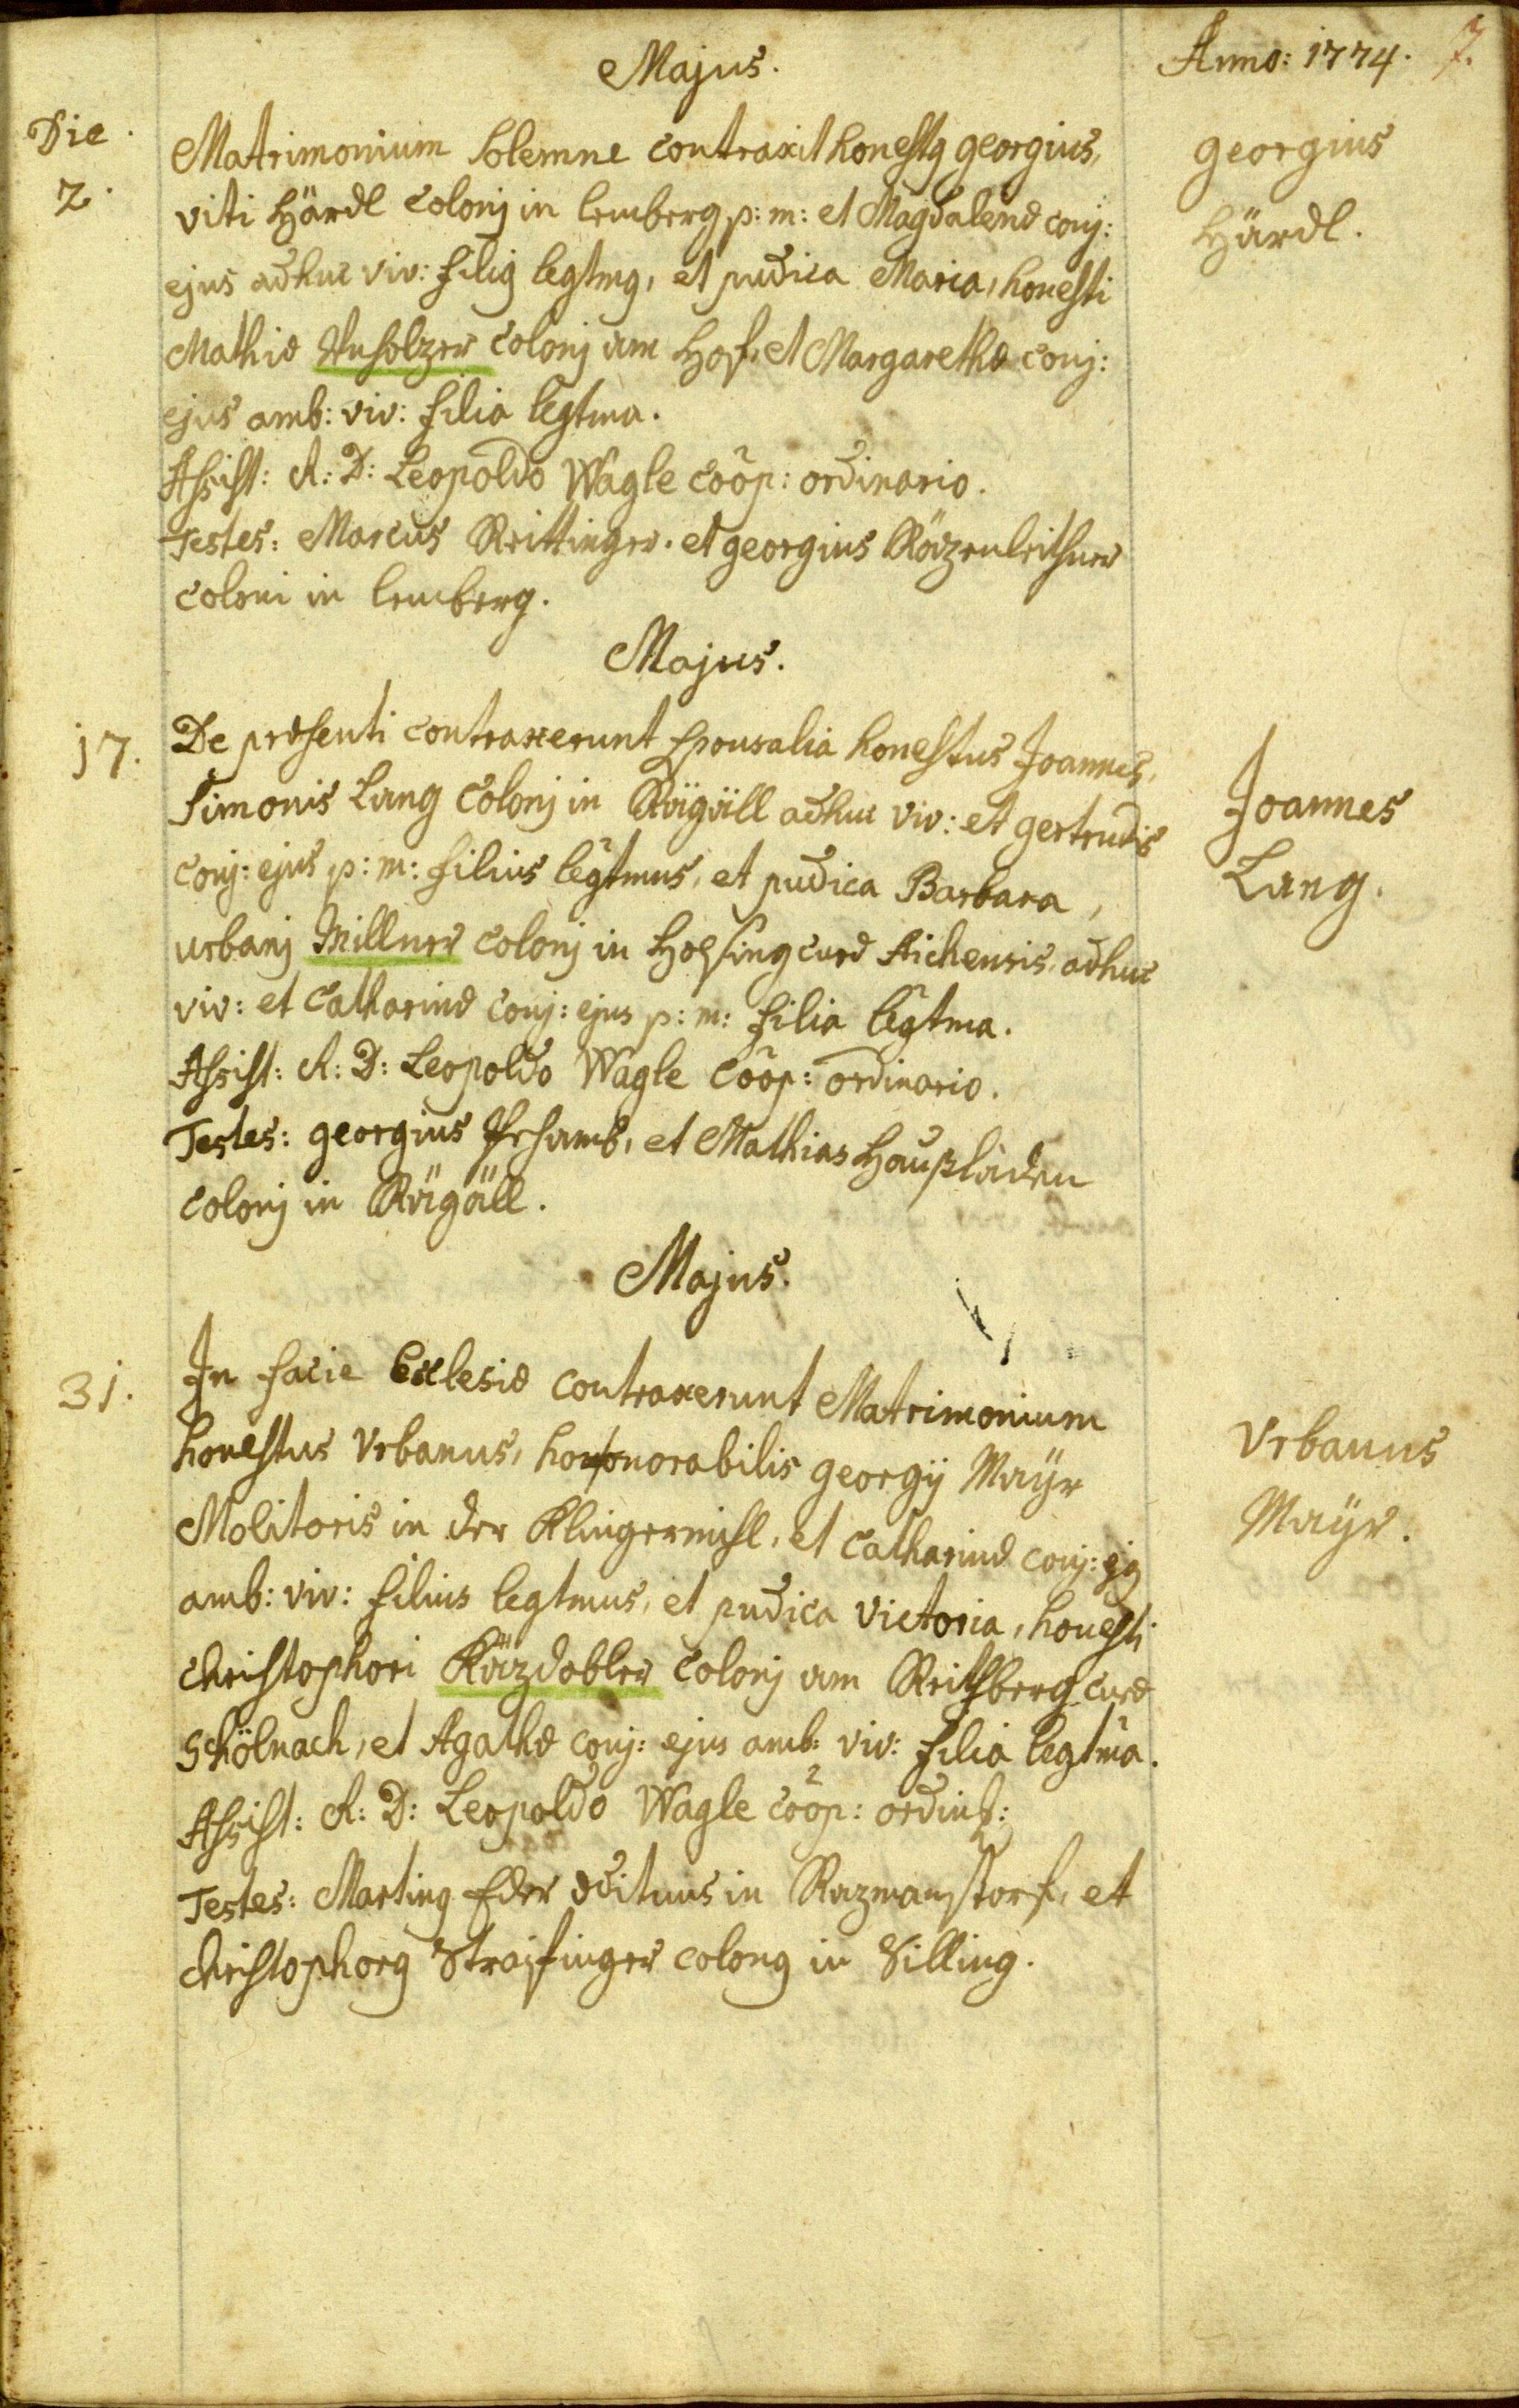 Majus.
Anno: 1774. 7.
Die
2.
Matrimonium solemne contraxit honestq georgius,
viti Härdl colonj in lemberg p: m: et Magdalenæ conj:
ejus adhuc viv: filiq legtmq, et pudica Maria, honesti
Mathiæ colonj am Hof, et Margarethæ conj:
ejus amb: viv: filia legtma.
Assist: A: R: D: Leopoldo Wagle coôp: ordinario.
Testes: Marcus Reittinger. et georgius
coloni in lemberg.
georgius
Härdl.
Majus.
17.
De præsenti contraxerunt sponsalia honestus Joannes,
Simonis Lang colonj in Rägäll adhuc viv: et gertrudis
conj: ejus p: m: filius legtmus, et pudica Barbara,
urbanj Millner colonj in curæ Aichensis, adhuc
viv: et Catharinæ conj: ejus p: m: filia legtma.
Assist: A: R: D: Leopoldo Wagle coôp: ordinario.
Testes: georgius et Mathias Haußladen
colonj in Rägäll.
Joannes
Lang.
Majus.
31.
In facie Ecclesiæ contraxerunt Matrimonium
honestus Vrbanus, honorabilis georgij Mayr
Molitoris in der Klingermihl, et Catharinæ conj: ejq
amb: viv: filius legtmus, et pudica Victoria, honesti
christophori Räzdobler colonj am Reithberg curæ
Schölnach, et Agathæ conj: ejus amb: viv: filia legtma.
Assist: A: R: D: Leopoldo Wagle coôp:
Testes: Martinq Eder ædituus in Razmanstorf, et
christophorq colonq in Silling.
Vrbanus
Mayr.